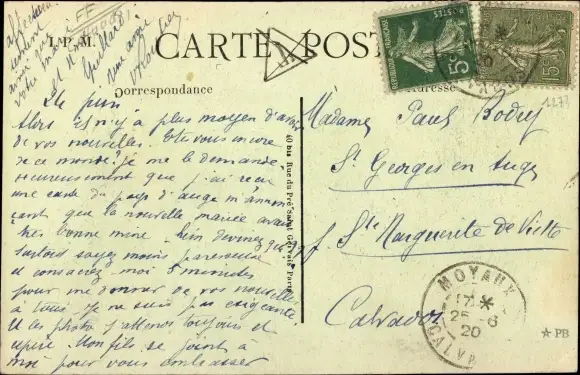 I.P.M.
CARTE POSTALE
Correspondance
Adresse
1273
Le juin
Alors il n'y a plus moyen d'avoir
de vos nouvelles. Etes vous encore
de ce monde. Je me le demande
heureusement que j'ai reçu
une carte du pays d'auge m'annon
çant que la nouvelle mariée avait
très bonne mine. Rien devinez
surtout soyez moins paresseuse
et consacrez moi 5 minutes
pour me donner de vos nouvelles
à tous. Je ne suis pas exigeante
Et les photos j'attends toujours et
espère. Mon fils se joint à
moi pour vous embrasser
affectueusement
votre amie
40 bis Rue du Pré-Saint-Gervais Paris
Madame Paul Bodey
St Georges en Auge
p. Ste Marguerite de Viette
Calvados
MOYAUX
17 *
25 - 6
20
CALVADOS
★ PB